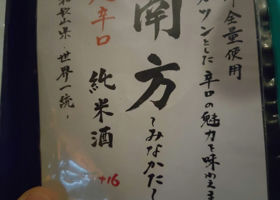 全量使用
ガツンとした 辛口の魅力を味わえる
南方
~みなかた~
純米酒 +16
大辛口
歌山県 世界一統